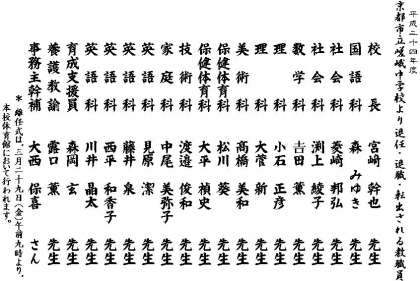 平成二十四年度
京都市立嵯峨中学校より退任・退職・転出される教職員
校長 宮崎 幹也 先生
国語科 森 みゆき 先生
社会科 菱崎 邦弘 先生
社会科 渕上 綾子 先生
数学科 吉田 薫 先生
理科 小石 正彦 先生
理科 大菅 新 先生
美術科 髙橋 美和 先生
保健体育科 松川 葵 先生
保健体育科 大平 禎史 先生
技術科 渡邉 俊和 先生
家庭科 中尾 美弥子 先生
英語科 見原 潔 先生
英語科 藤井 泉 先生
英語科 西平 和香子 先生
英語科 川井 晶太 先生
育成支援員 森岡 玄 先生
養護教諭 露口 薫 先生
事務主幹補 大西 保喜 さん
＊ 離任式は、三月二十九日(金)午前九時より、
本校体育館において行われます。